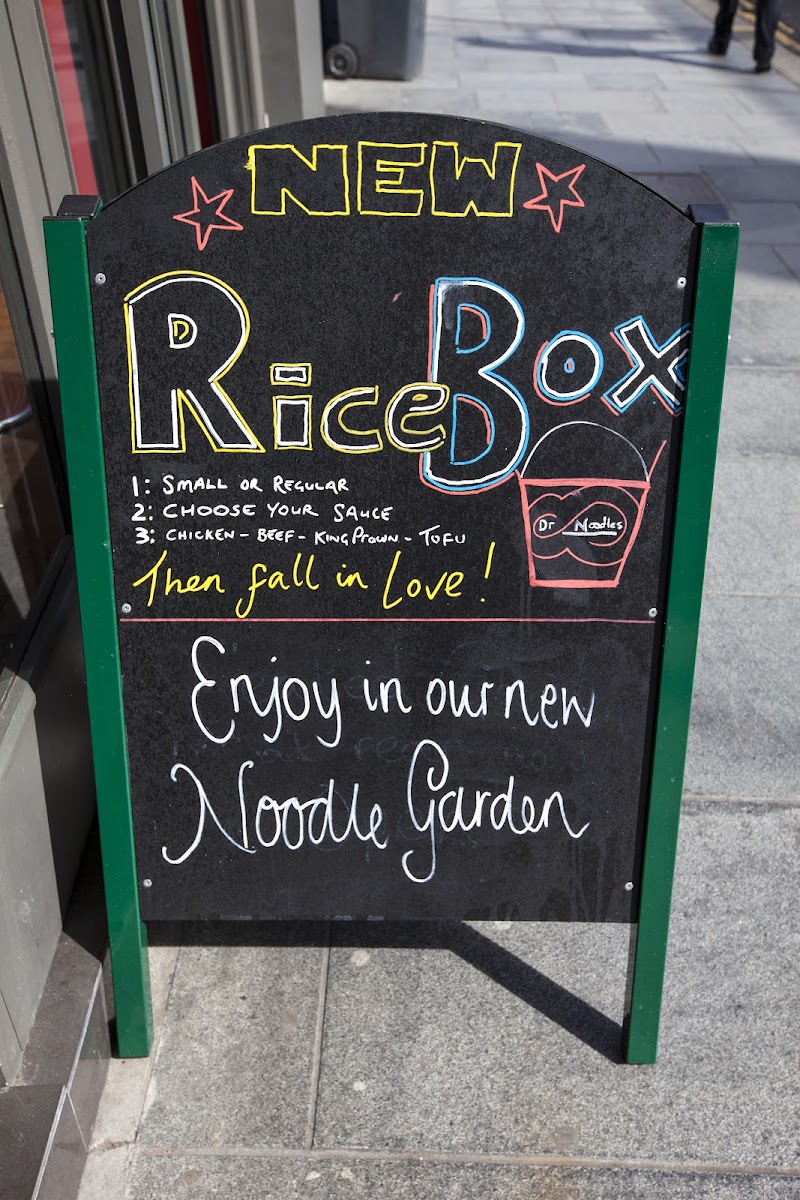 NEW
Rice Box
1: SMALL OR REGULAR
2: CHOOSE YOUR SAUCE
3: CHICKEN - BEEF - KING PROWN - TOFU
Dr Noodles
Then fall in Love!
Enjoy in our new
Noodle Garden